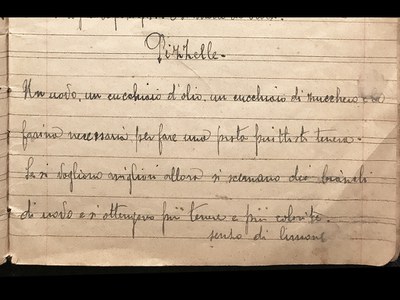 Pizzelle.
Un uovo, un cucchiaio d'olio, un cucchiaio di zucchero e la
farina necessaria per fare una pasta piuttosto tenera.
Se si vogliono migliori allora si scemano dei bianchi
di uovo e si ottengono più tenere e più colorite.
senso di limone